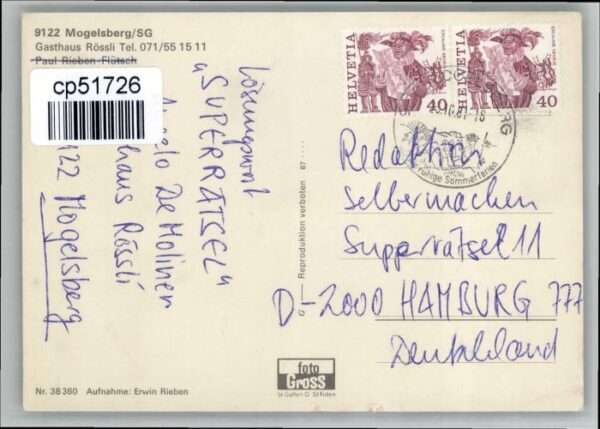 9122 Mogelsberg/SG
Gasthaus Rössli Tel. 071/55 15 11
Paul Rieben-Flütsch
cp51726
Lösungswort
"SUPERRÄTSEL"
Angelo De Moliner
haus Rössli
22 Mogelsberg
Reproduktion verboten 67
HELVETIA 40
HELVETIA 40
ruhige Sommerferien
Redaktion
Selbermachen
Supperrätsel 11
D-2000 HAMBURG 777
Deutschland
foto
Gross
St Gallen
Nr. 38 360 Aufnahme: Erwin Rieben